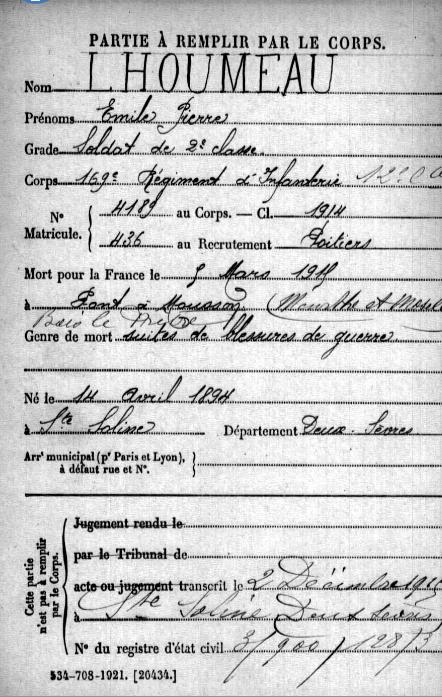 PARTIE À REMPLIR PAR LE CORPS.
Nom LHOUMEAU
Prénoms Emile Pierre
Grade Soldat de 2e classe
Corps 169e Régiment d'Infanterie
N° Matricule. 4189 au Corps. — Cl. 1914
436 au Recrutement Poitiers
Mort pour la France le Mars 1915
à Pont à Mousson (Meurthe et Mosel
Bois le Prêtre
Genre de mort suites de blessures de guerre
Né le 14 avril 1894
à Ste Soline Département Deux-Sèvres
Arrt municipal (pr Paris et Lyon), à défaut rue et N°.
Cette partie n'est pas à remplir par le Corps.
Jugement rendu le
par le Tribunal de
acte ou jugement transcrit le 2 Décembre
à Ste Soline Deux Sèvres
N° du registre d'état civil
534-708-1921. [20434.]